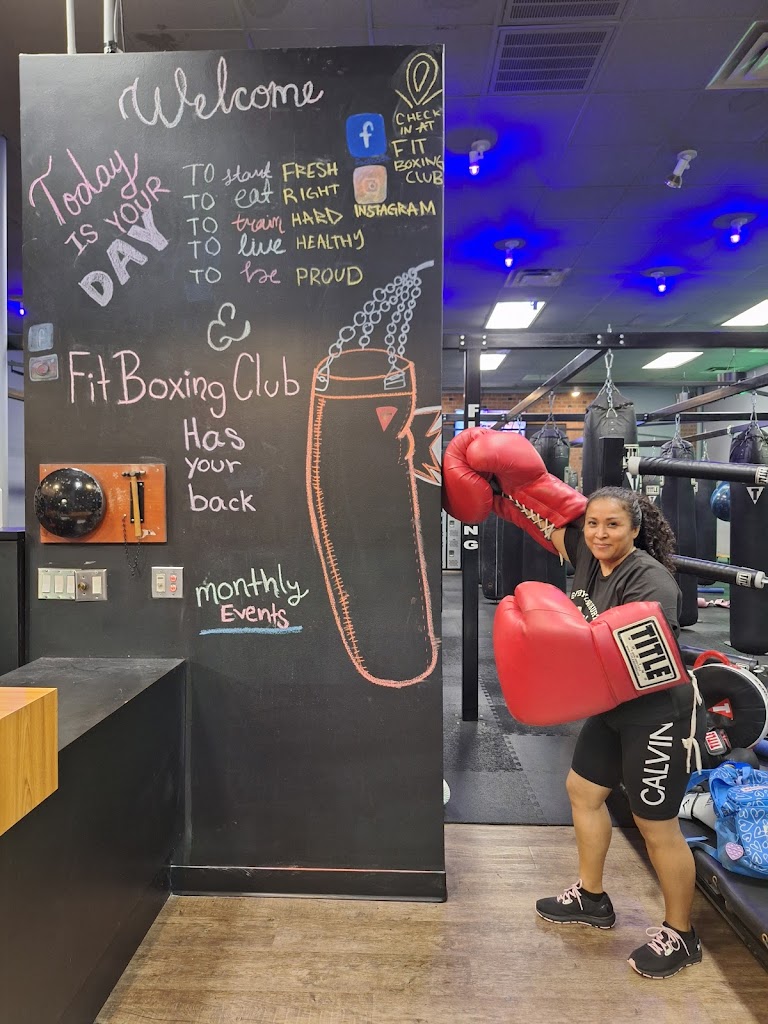 Welcome
Today
IS YOUR
DAY
TO start FRESH
TO eat RIGHT
TO train HARD
TO live HEALTHY
TO be PROUD
f
CHECK
IN-AT
FIT
BOXING
CLUB
INSTAGRAM
&
Fit Boxing Club
Has
your
back
monthly
Events
F
NG
TITLE
CALVIN
TITLE